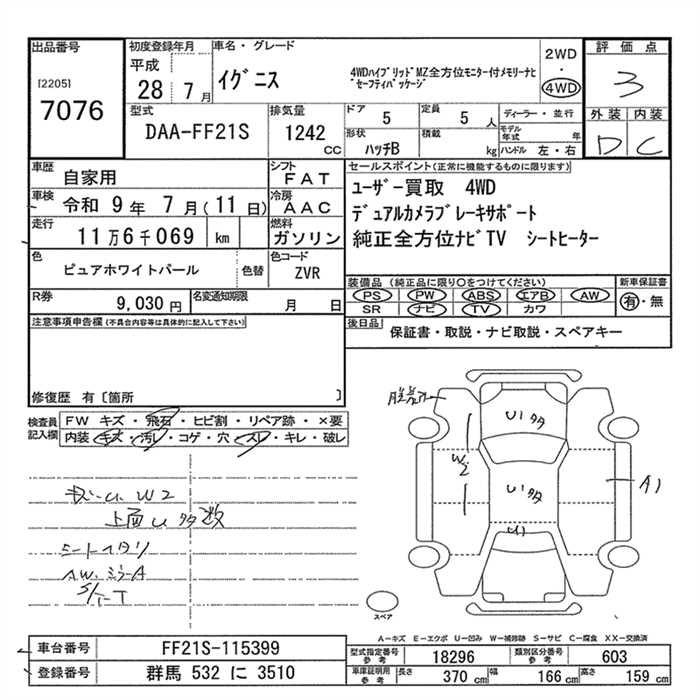 出品番号
[2205]
7076
初度登録年月
平成
28 7月
車名・グレード
イグニス
4WDハイブリッドMZ全方位モニター付メモリーナビ
セーフティパッケージ
2WD
・
4WD
評価点
3
外装 内装
D C
型式
DAA-FF21S
排気量
1242
cc
ドア
5
定員
5 人
形状
ハッチB
積載
kg
ディーラー・並行
モデル年式 年
ハンドル 左・右
車歴
自家用
シフト
FAT
車検
令和 9年 7月(11日)
冷房
AAC
走行
11万6千069 km
燃料
ガソリン
色
ピュアホワイトパール
色替
色コード
ZVR
R券
9,030円
名変通知期限
月 日
セールスポイント(正常に機能するものに限ります)
ユーザー買取 4WD
デュアルカメラブレーキサポート
純正全方位ナビTV シートヒーター
装備品(純正品に限り○をつけてください)
PS PW ABS エアB AW
SR ナビ TV カワ
新車保証書
有・無
後日品
保証書・取説・ナビ取説・スペアキー
注意事項申告欄(不具合内容等は具体的に記入して下さい)
修復歴 有〔箇所 〕
検査員
記入欄
FW キズ・飛石・ヒビ割・リペア跡・×要
内装 キズ・汚レ・コゲ・穴・スレ・キレ・破レ
W2
上面U
シートヘタリ
AW.ミラーA
U1
W2
U1
U1
A1
スペア
A-キズ E-エクボ U-凹み W-補修跡 S-サビ C-腐食 XX-交換済
車台番号
FF21S-115399
登録番号
群馬 532 に 3510
型式指定番号
参考
18296
類別区分番号
参考
603
車庫証明用
参考
長さ
370 cm
幅
166 cm
高さ
159 cm